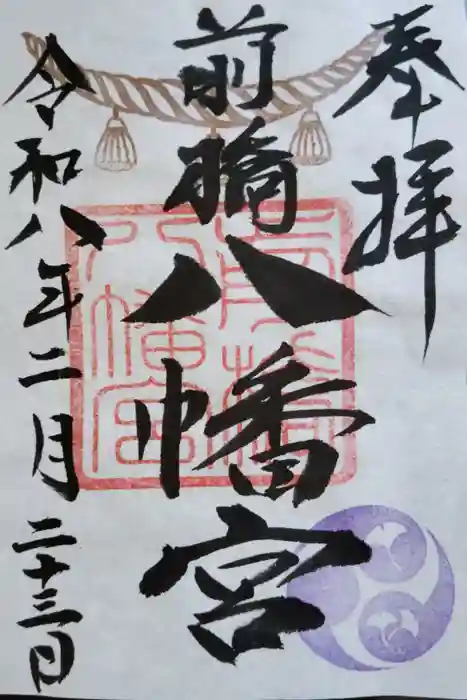 奉拝
前橋八幡宮
令和八年二月二十三日
前橋八幡宮